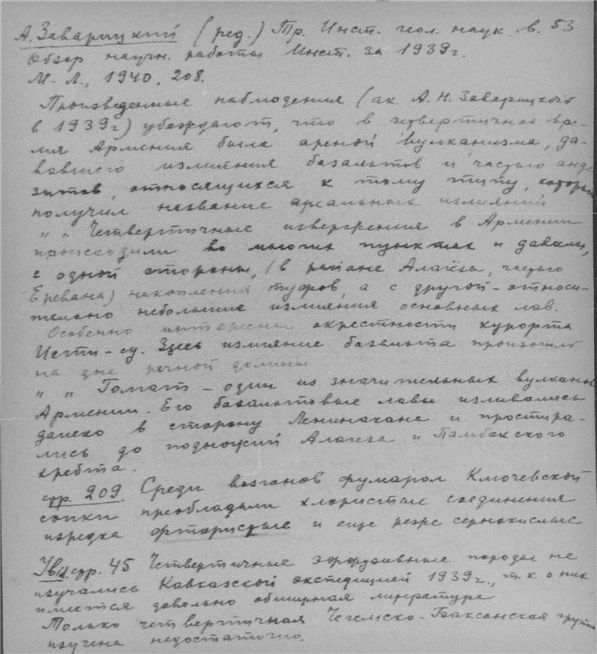 А. Заварицкий (ред.) Тр. Инст. геол. наук. в. 53
Обзор научн. работы Инст. за 1939г.
М.-Л., 1940, 208.
Произведенные наблюдения (ак. А.Н. Заварицкого
в 1939г) убеждают, что в четвертичное вре-
мя Армения была ареной вулканизма, да-
вавшего излияния базальтов и частью анде
зитов, относящихся к тому типу, который
получил название ареальных излияний
„ „ Четвертичные извержения в Армении
происходили во многих пунктах и давали,
с одной стороны, (в районе Алагёза, частью
Еревана) накопления туфов, а с другой - относи-
тельно небольшие излияния основных лав.
Особенно интересны окрестности курорта
Исти-су. Здесь излияние базальта произошло
на дне речной долины
„ „ - один из значительных вулканов
Армении. Его базальтовые лавы изливались
далеко в сторону Ленинакана и простира-
лись до подножий Алагёза и Памбакского
хребта.
стр. 209. Среди возгонов фумарол Ключевской
сопки преобладали хлористые соединения
изредка фтористые и еще реже сернокислые
стр. 45 Четвертичные эффузивные породы не
изучались Кавказской экспедицией 1939г., т.к. о них
имеется довольно обширная литература
Только четвертичная Чегемско-Баксанская группа
изучена недостаточно.